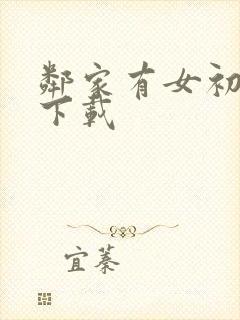 鄰家有女初
下載
宜蓁